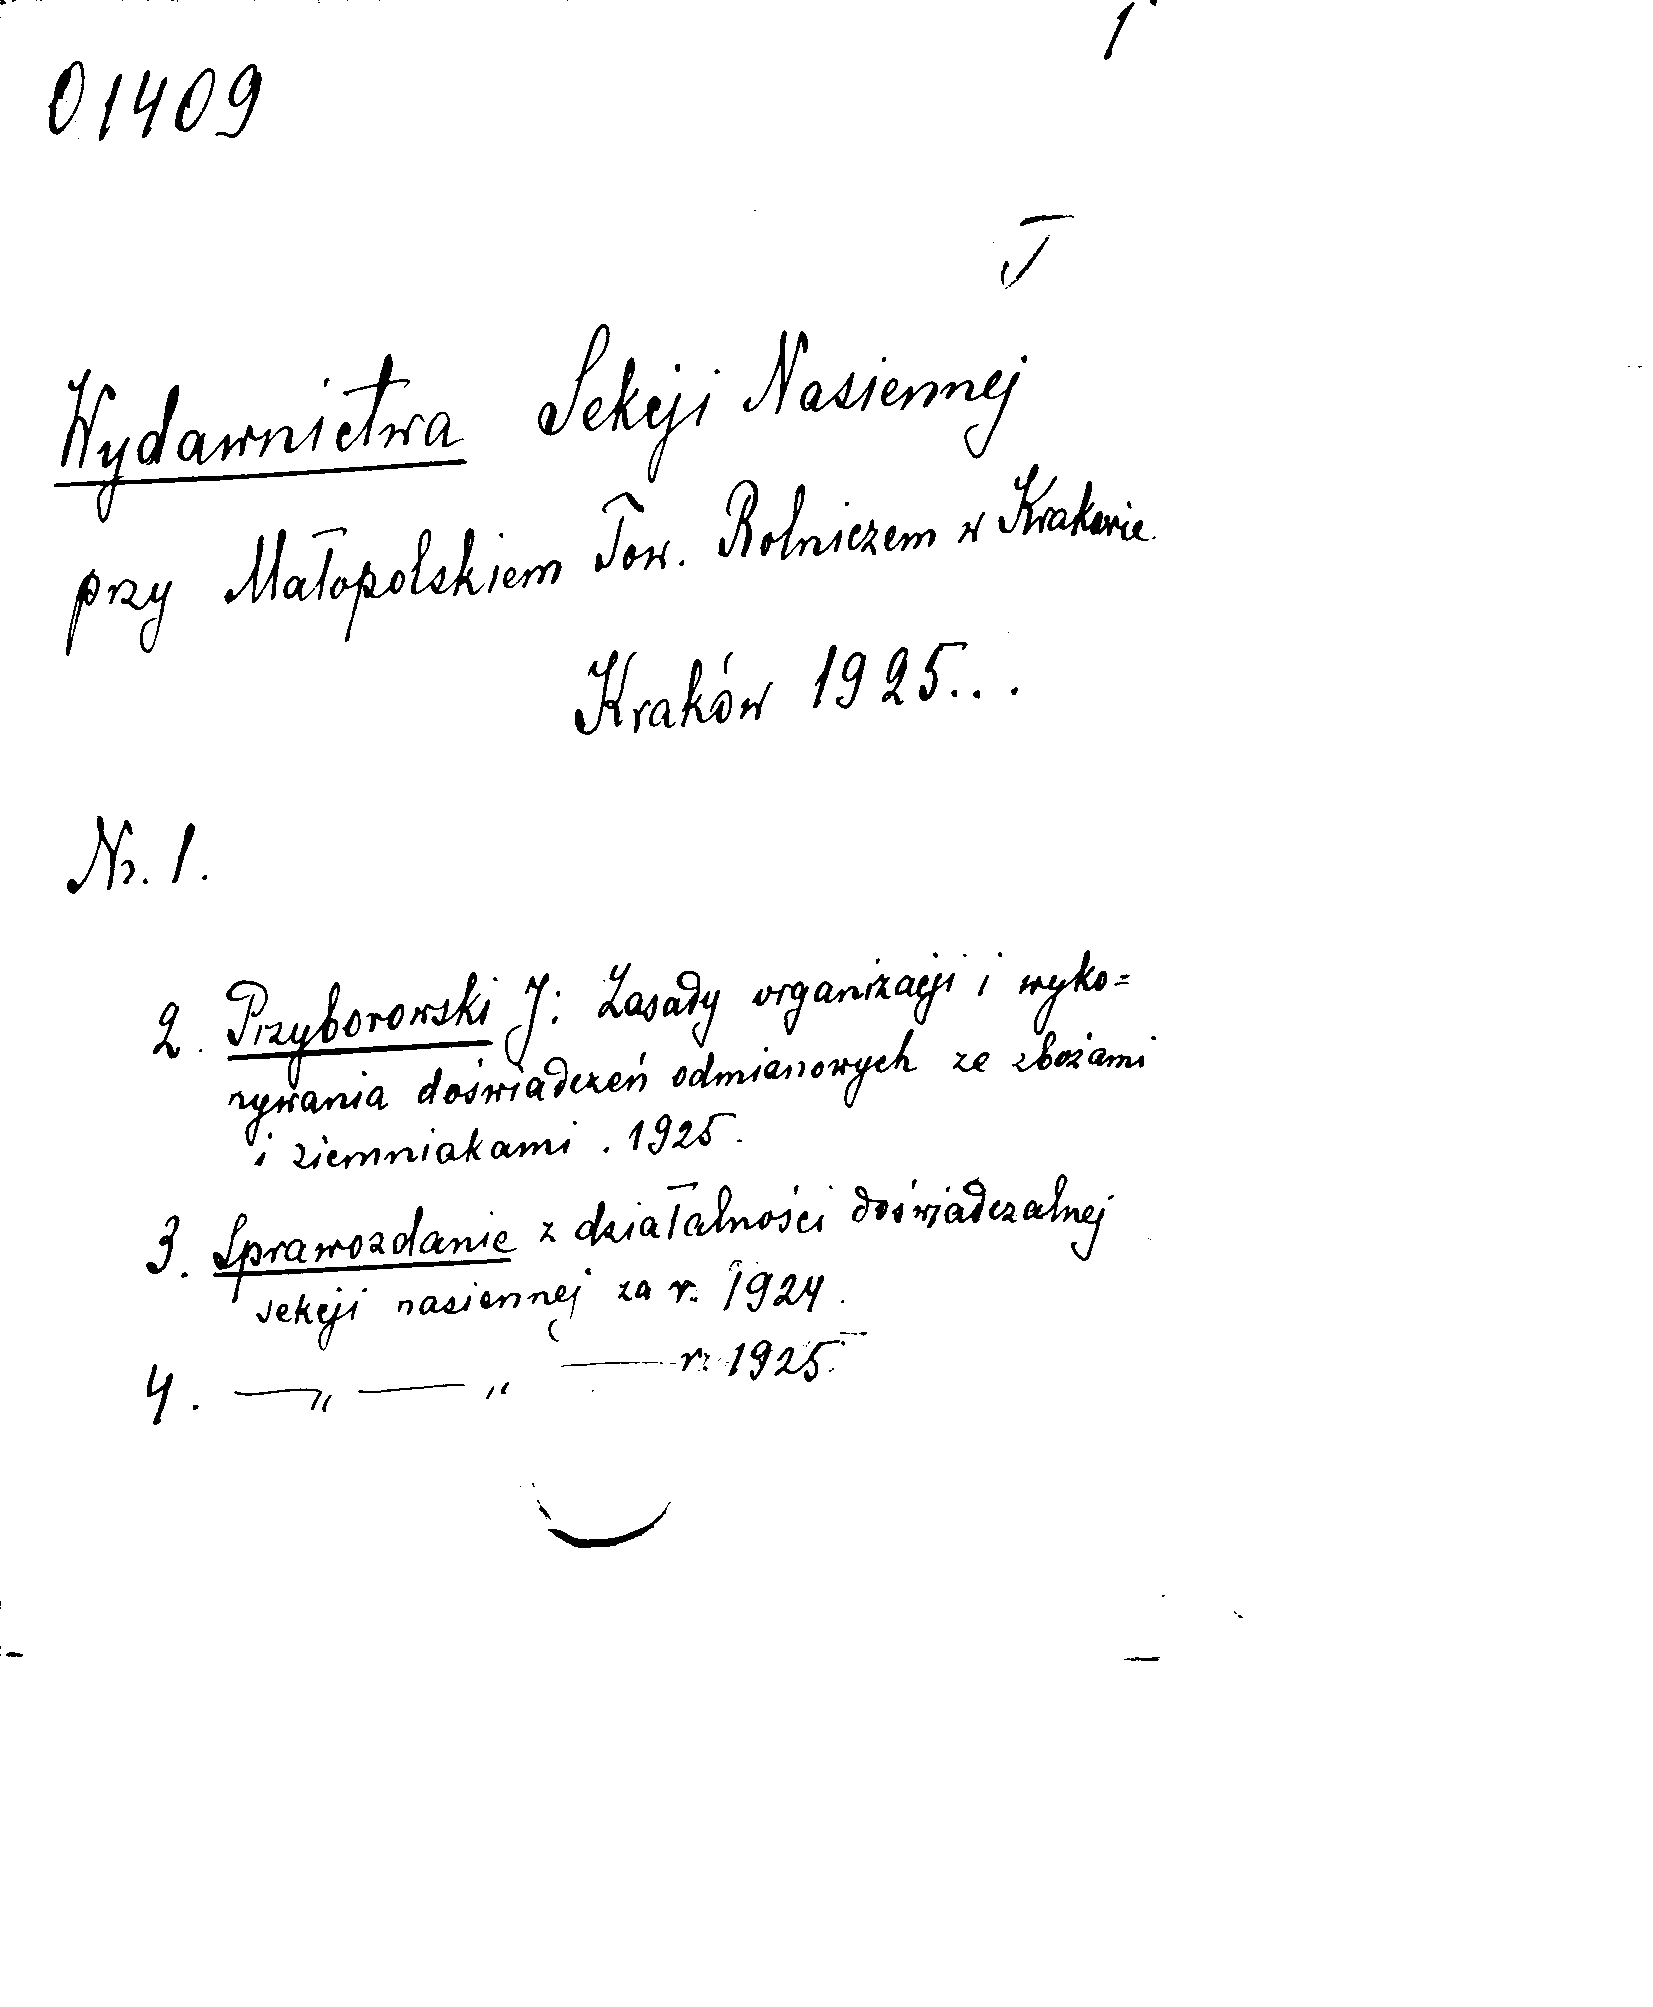 1
01409
T
Wydawnictwa Sekcji Nasiennej
przy Małopolskiem Tow. Rolniczem w Krakowie.
Kraków 1925...
Nr. 1.
2. Przyborowski J: Zasady organizacji i wyko=
nywania doświadczeń odmianowych ze zbożami
i ziemniakami. 1925.
3. Sprawozdanie z działalności doświadczalnej
sekcji nasiennej za r. 1924.
4. —„ — „ — r. 1925.